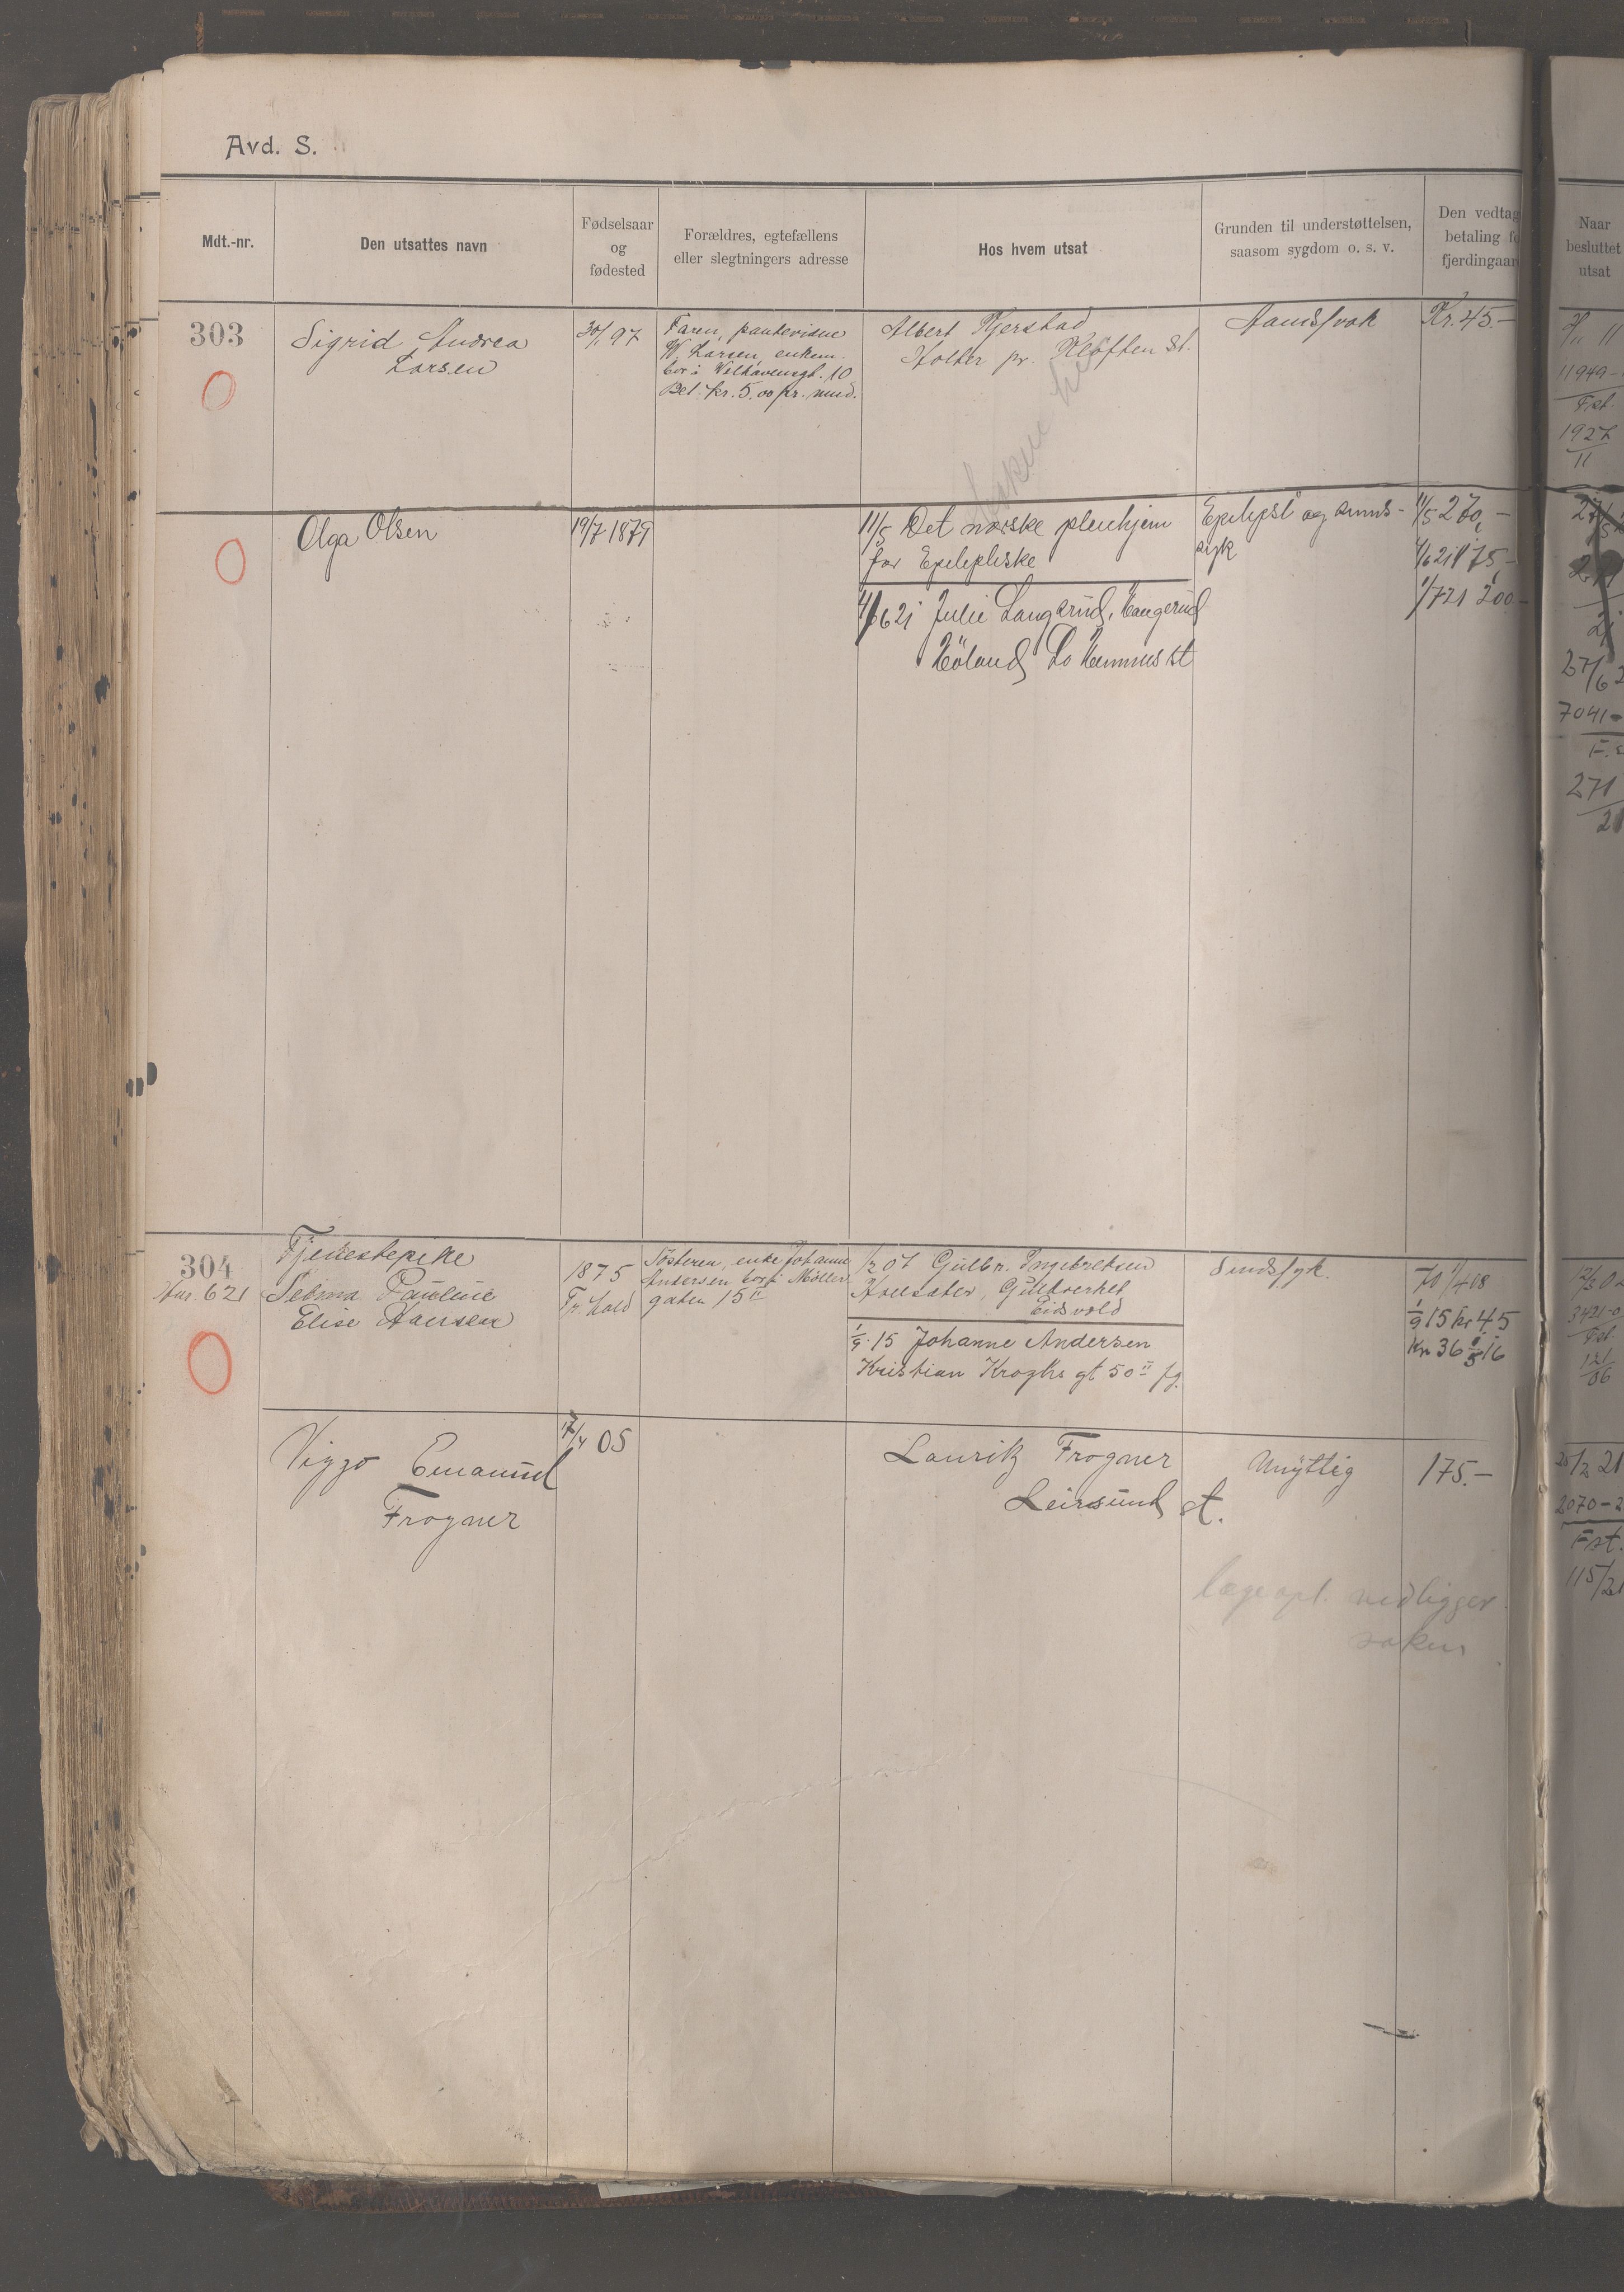 Avd. S.
Mdt.-nr.
Den utsattes navn
Fødselsaar
og
fødested
Forældres, egtefællens
eller slegtningers adresse
Hos hvem utsat
Grunden til understøttelsen,
saasom sygdom o. s. v.
Den vedtag
betaling fo
fjerdingaar
Naar
besluttet
utsat
303
Sigrid Andrea
Larsen
30/1 97
Faren,
W. Larsen, enkem.
bor i Welhavensgt. 10
Bet. kr. 5.00 pr. mnd.
Albert Kjerstad
Holter pr. Kløften St.
Aandssvak
Kr. 45.-
11949-
Fst.
1927
11
Olga Olsen
19/7 1879
11/5 Det norske pleiehjem
for Epileptiske
1/6 21 Julie Langerud, Langerud
Höland Lo Hemnes st
Epilepsi og sinns-
syk
11/5 270,-
1/6 21 175,-
1/7 21 200-
27/6 2
7041-
271
21
304
Hus. 621
Tjenestepike
Selma Pauline
Elise Hansen
1875
Fr.hald
Søsteren, enke Johanne
Andersen bor i Møller
gaten 15 II
Gulbr. Ingebretsen
Gullverket
Eidsvold
1/9 15 Johanne Andersen
Kristian Kroghs gt 50 II
Sindssyk.
70 1/4 08
1/9 15 kr 45
Kr 36 1/5 16
3421-0
Fst
121
06
Viggo Emanuel
Frogner
17/4 05
Lauritz Frogner
Leirsund st.
Unyttig
175.-
25/2 21
2070-2
Fst.
115/21
lægeopl. vedligger
saken